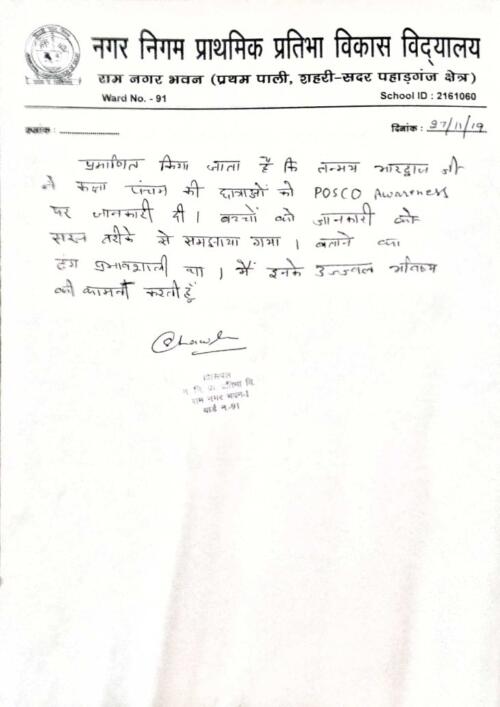 नगर निगम प्राथमिक प्रतिभा विकास विद्यालय
राम नगर भवन (प्रथम पाली, शहरी-सदर पहाड़गंज क्षेत्र)
Ward No. - 91 School ID : 2161060
क्रमांक : ................. दिनांक : 27/11/19
प्रमाणित किया जाता है कि तन्मय भारद्वाज जी
ने कक्षा पंचम की छात्राओं को POSCO Awareness
पर जानकारी दी । बच्चों को जानकारी को
सरल तरीके से समझाया गया । बताने का
ढंग प्रभावशाली था । मैं इनके उज्जवल भविष्य
की कामना करती हूँ
न. नि. प्रा. प्रतिभा वि.
राम नगर भवन-I
वार्ड न.-91